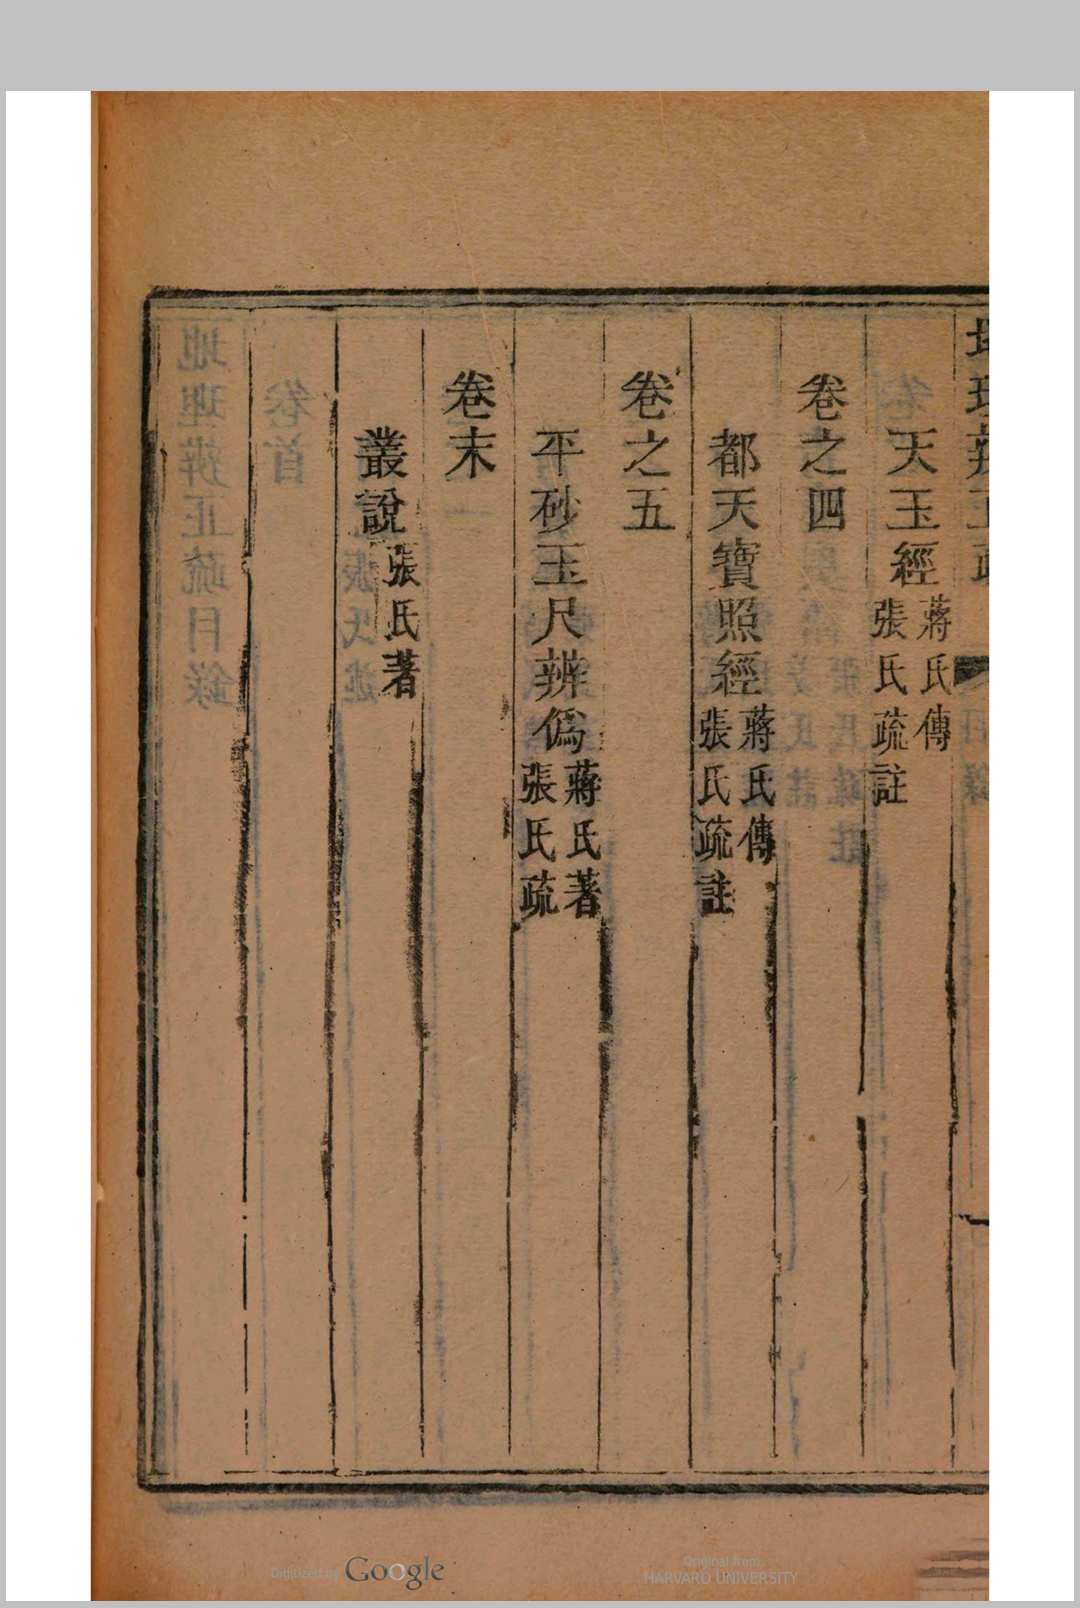 天玉經 蔣氏傳 張氏疏註
卷之四
都天寶照經 蔣氏傳 張氏疏註
卷之五
平砂玉尺辨偽 蔣氏著 張氏疏
卷末
叢說 張氏著
Digitized by Google
Original from
HARVARD UNIVERSITY